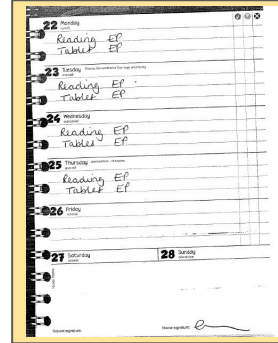 22 Monday
Reading EP
Tablet EP
23 Tuesday
Reading EP
Tablet EP
24 Wednesday
Reading EP
Tablet EP
25 Thursday
Reading EP
Tablet EP
26 Friday
27 Saturday
28 Sunday
School signature:
Home signature: